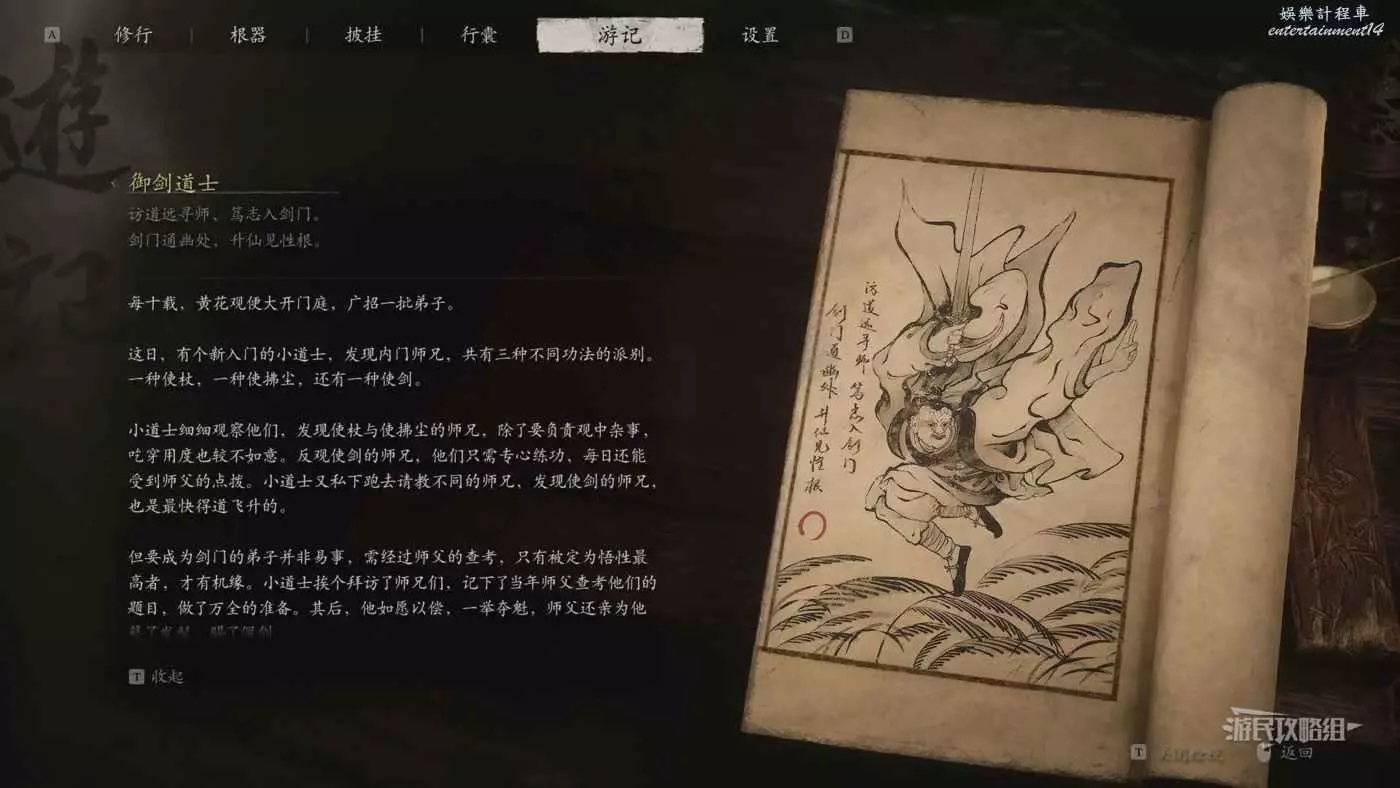 A 修行 根器 披挂 行囊 游记 设置 D
娱樂計程車
entertainment14
遊記
御剑道士
访道远寻师、笃志入剑门。
剑门通幽处，升仙见性根。
每十载，黄花观便大开门庭，广招一批弟子。
这日，有个新入门的小道士，发现内门师兄，共有三种不同功法的派别。
一种使杖，一种使拂尘，还有一种使剑。
小道士细细观察他们，发现使杖与使拂尘的师兄，除了要负责观中杂事，
吃穿用度也较不如意。反观使剑的师兄，他们只需专心练功，每日还能
受到师父的点拨。小道士又私下跑去请教不同的师兄，发现使剑的师兄，
也是最快得道飞升的。
但要成为剑门的弟子并非易事，需经过师父的查考，只有被定为悟性最
高者，才有机缘。小道士挨个拜访了师兄们，记下了当年师父查考他们的
题目，做了万全的准备。其后，他如愿以偿，一举夺魁，师父还亲为他
T 收起
访道远寻师 笃志入剑门
剑门通幽处 升仙见性根
游民攻略组
T
返回